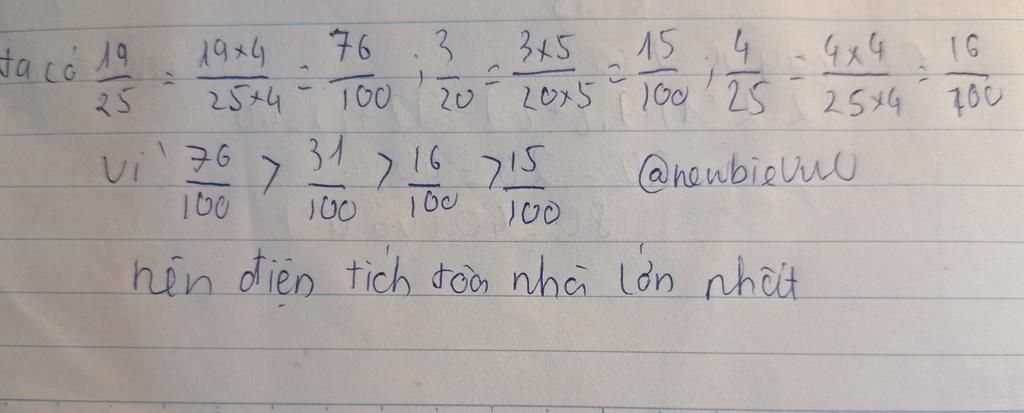 ta có 19/25 = 19×4/25×4 = 76/100 ; 3/20 = 3×5/20×5 = 15/100 ; 4/25 = 4×4/25×4 = 16/100
Vì 76/100 > 31/100 > 16/100 > 15/100 @newbieVuU
nên điện tích tòa nhà lớn nhất